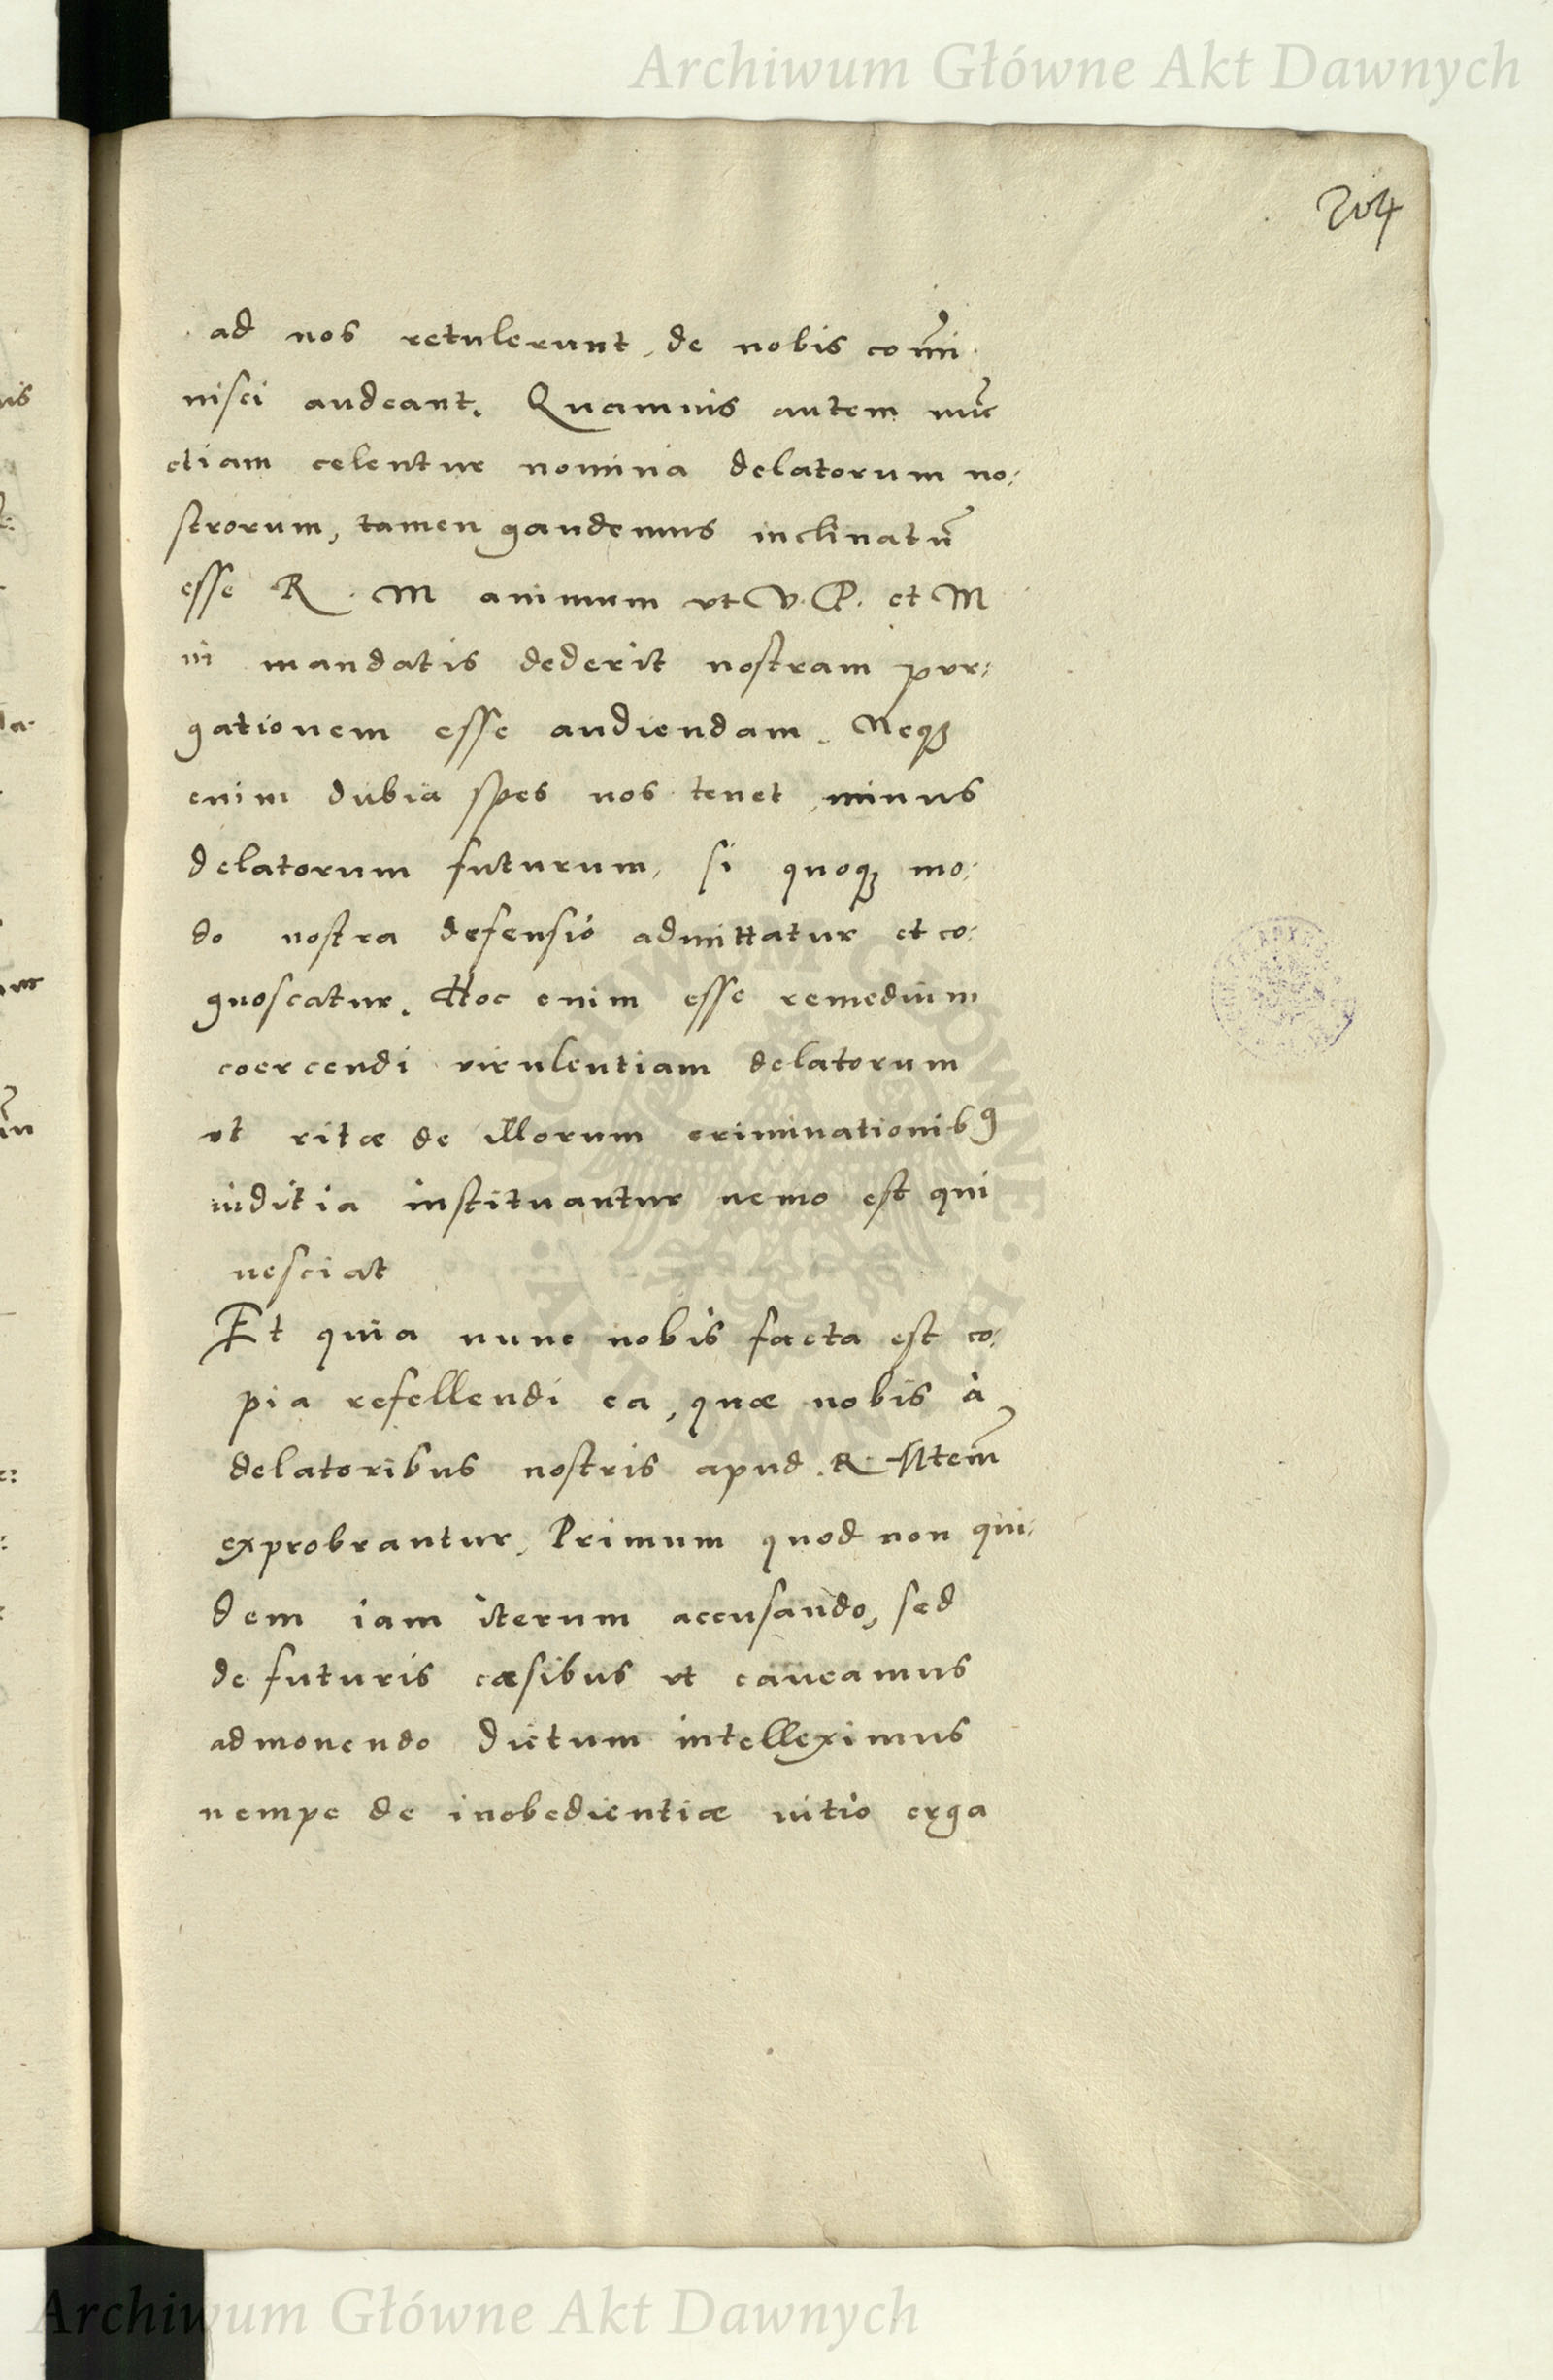 Archiwum Główne Akt Dawnych
204
ad nos retulerunt, de nobis com̄i
nisci audeant. Quamuis autem nūc
etiam celentur nomina delatorum no:
strorum, tamen gaudemus inclinatū
esse R. M animum vt V. P. et M
in mandatis dederit nostram pur:
gationem esse audiendam. Neqꝫ
enim dubia spes nos tenet, minus
delatorum futurum, si quoqꝫ mo:
do nostra defensio admittatur et co:
gnoscatur. Hoc enim esse remedium
coercendi virulentiam delatorum
vt ritæ de illorum criminationibꝰ
iuditia instituantur nemo est qui
nesciat
Et quia nunc nobis facta est co:
pia refellendi ea, quæ nobis à
delatoribus nostris apud R. Mtem̄
exprobrantur. Primum quod non qui:
dem iam iterum accusando, sed
de futuris casibus vt caueamus
admonendo dictum intelleximus
nempe de inobedientiæ uitio erga
ARCHIWUM GŁÓWNE · AKT DAWNYCH ·
Archiwum Główne Akt Dawnych